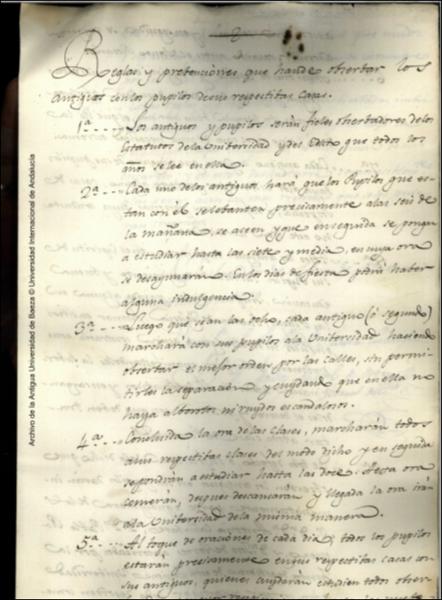 Reglas y pretenciones que hande obserbar los
antiguos con los pupilos de sus respectibas casas.
1ª Los antiguos y pupilos serán fieles obserbadores de los
Estatutos de la Uniberсidad y des Edicto que todos los
años se lee en ella.
2ª Cada uno de los antiguos hará que los Pupilos que es-
tan con él se lebanten precisamente alas seis de
la mañana, se aseen y que enseguida se pongan
a estudiar hasta las siete y media, en cuya ora
se desayunarán. En los dias de fiesta podrá haber
alguna indulgencia.
3ª Luego que sean las ocho, cada antiguo (ó segundo)
marchará con sus pupilos ala Unibersidad haciendo
obserbar el mejor orden por las calles, sin permi-
tirles la separación y cuydando que en ella no
haya alborotos ni ruydos escandalosos.
4ª Concluida la ora de las clases, marcharán todos
a sus respectibas clases del modo dicho y en seguida
se pondrán a estudiar hasta las doce. A esta ora
comerán, despues descansaran y llegada la ora irán
ala Unibersidad de la misma manera.
5ª Al toque de oraciones de cada dia, todos los pupilos
estarán precisamente en sus respectibas casas con
sus antiguos, quienes cuydarán estudien todos obser-
Archivo de la Antigua Universidad de Baeza © Universidad Internacional de Andalucía